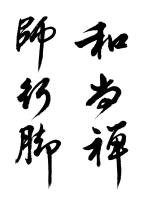 和尚禅
師行脚